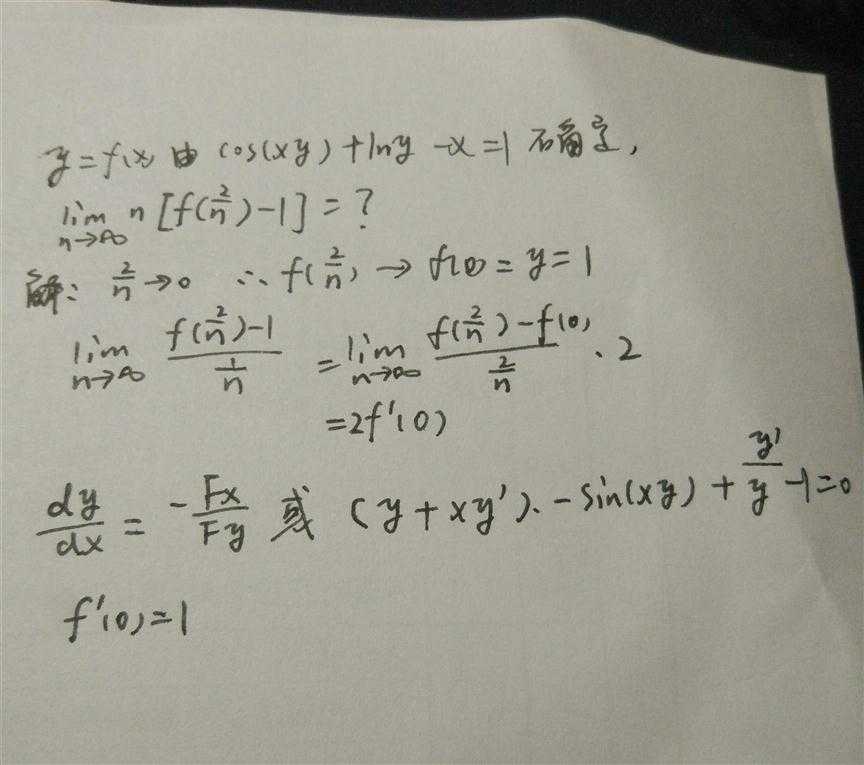 y=f(x) 由 cos(xy)+lny-x=1 确定,
lim n→∞ n[f(2/n)-1]=?
解: 2/n→0 ∴f(2/n)→f(0)=y=1
lim n→∞ (f(2/n)-1)/(1/n) =lim n→∞ (f(2/n)-f(0))/(2/n) · 2
=2f'(0)
dy/dx = -Fx/Fy 或 (y+xy')·-sin(xy)+y'/y-1=0
f'(0)=1